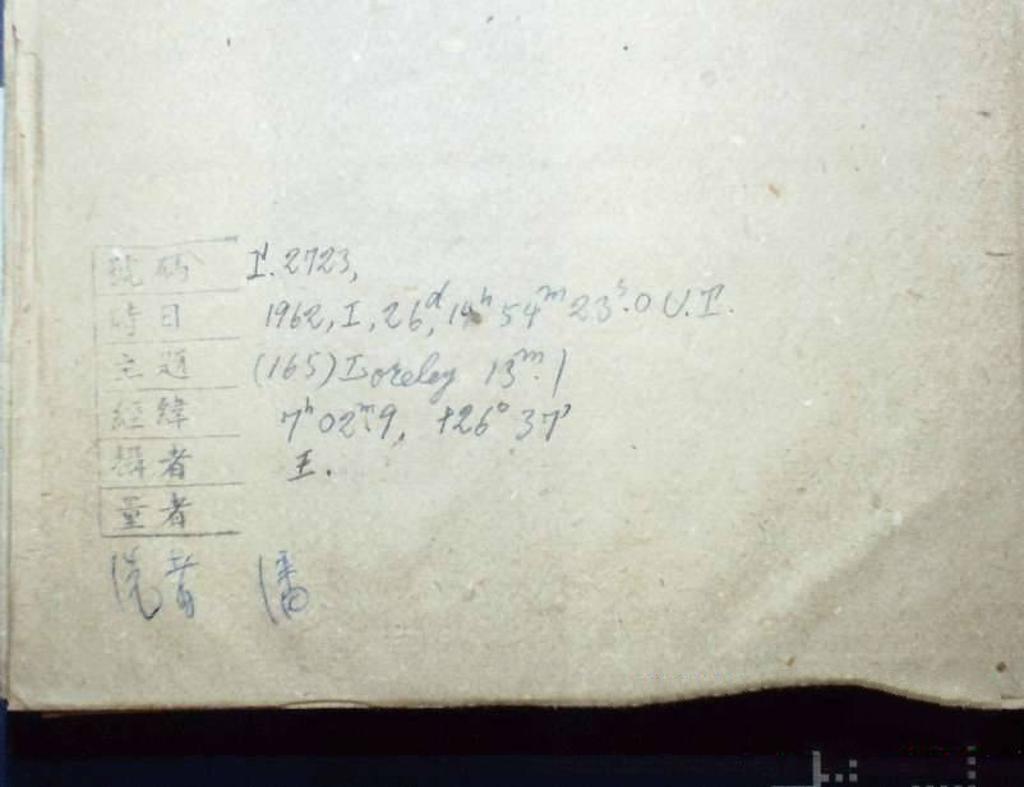 號碼 I'. 2723,
時日 1962, I, 26ᵈ, 14ʰ 54ᵐ 23ˢ.0 U.T.
主題 (165) Loreley 13ᵐ.1
經緯 7ʰ 02ᵐ.9, +26° 37'
攝者 王.
量者
潘